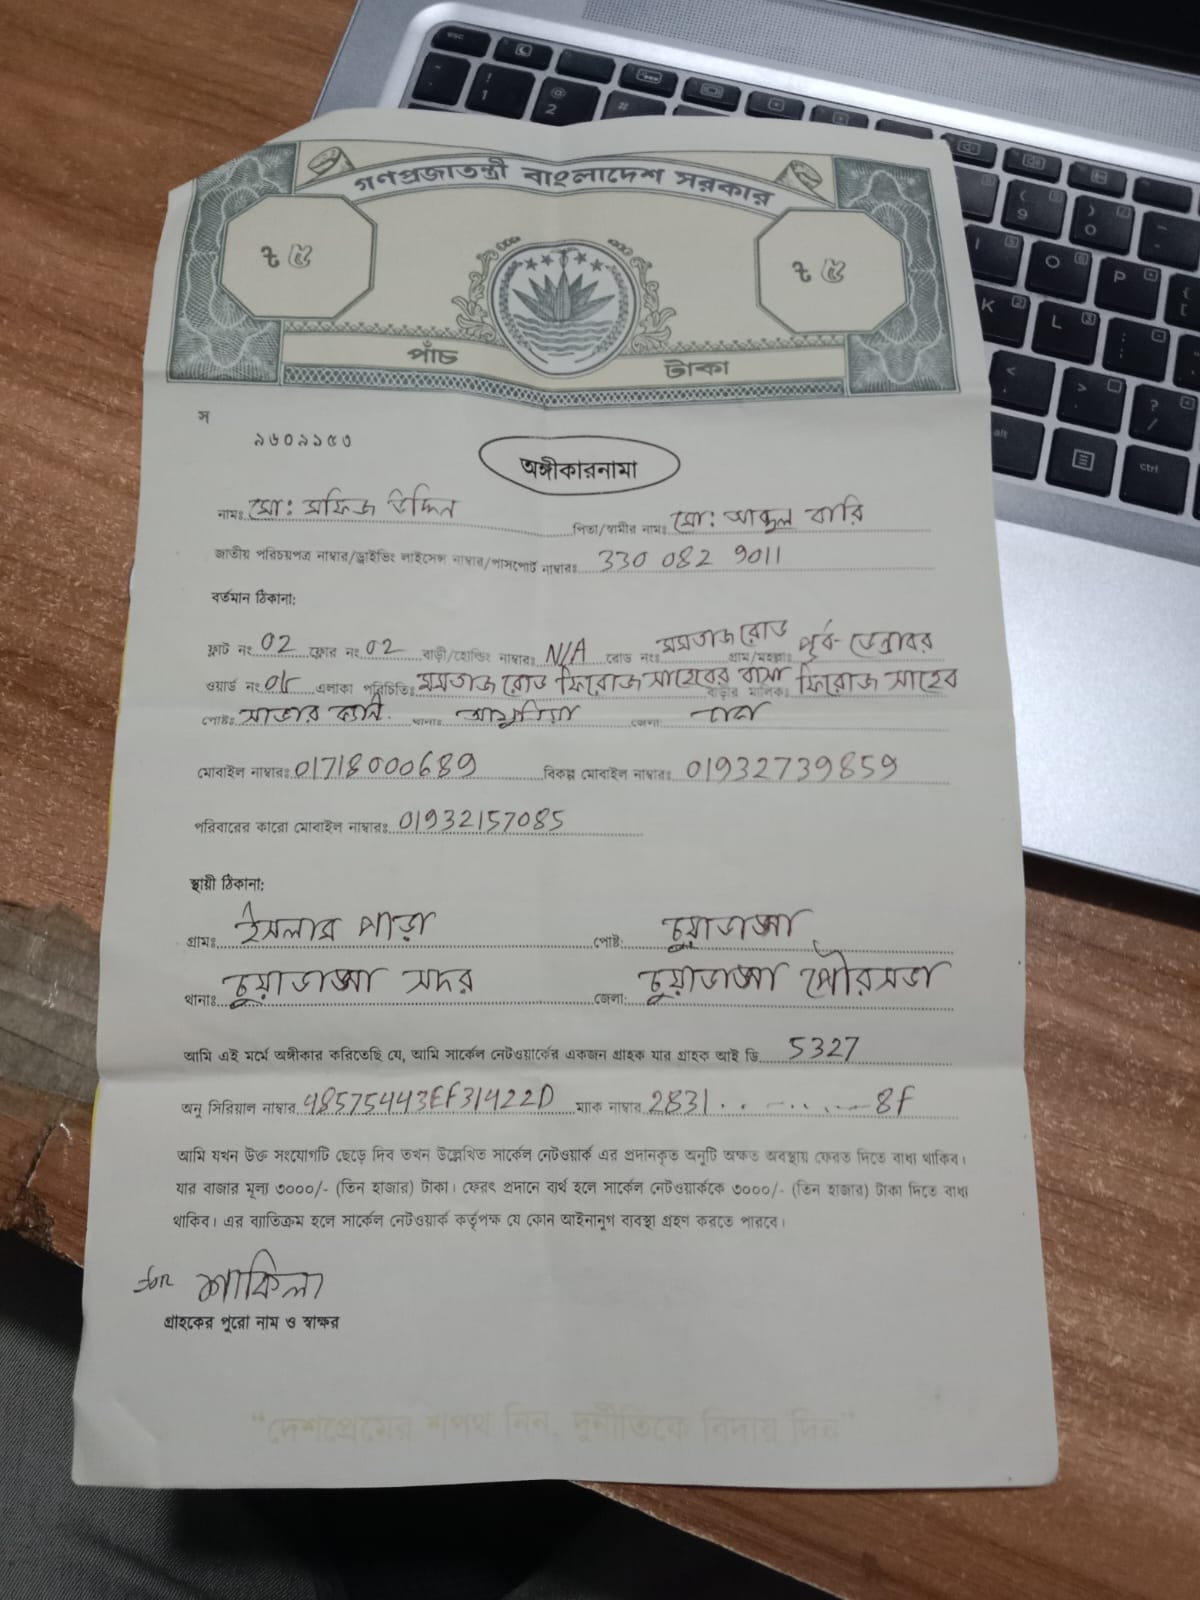 গণপ্রজাতন্ত্রী বাংলাদেশ সরকার
৳ ৫ ৳ ৫
পাঁচ টাকা
স
৯৬০৯১৫৩
অঙ্গীকারনামা
নামঃ মো: মফিজ উদ্দিন পিতা/স্বামীর নামঃ মো: আব্দুল বারি
জাতীয় পরিচয়পত্র নাম্বার/ড্রাইভিং লাইসেন্স নাম্বার/পাসপোর্ট নাম্বারঃ 330 082 9011
বর্তমান ঠিকানা:
ফ্লাট নং 02 ফ্লোর নং 02 বাড়ী/হোল্ডিং নাম্বারঃ N/A রোড নংঃ মমতাজ রোড গ্রাম/মহল্লাঃ পূর্ব- ডেন্ডাবর
ওয়ার্ড নং 05 এলাকা পরিচিতিঃ মমতাজ রোড ফিরোজ সাহেবের বাসা বাড়ীর মালিকঃ ফিরোজ সাহেব
পোষ্টঃ সাভার ক্যান্ট. থানাঃ আশুলিয়া জেলা: ঢাকা
মোবাইল নাম্বারঃ 01718000689 বিকল্প মোবাইল নাম্বারঃ 01932739859
পরিবারের কারো মোবাইল নাম্বারঃ 01932157085
স্থায়ী ঠিকানা:
গ্রামঃ ইসলাম পাড়া পোষ্ট: চুয়াডাঙ্গা
থানাঃ চুয়াডাঙ্গা সদর জেলা: চুয়াডাঙ্গা পৌরসভা
আমি এই মর্মে অঙ্গীকার করিতেছি যে, আমি সার্কেল নেটওয়ার্কের একজন গ্রাহক যার গ্রাহক আই ডি 5327
অনু সিরিয়াল নাম্বার 48575443EF31422D ম্যাক নাম্বার 2831..........8f
আমি যখন উক্ত সংযোগটি ছেড়ে দিব তখন উল্লেখিত সার্কেল নেটওয়ার্ক এর প্রদানকৃত অনুটি অক্ষত অবস্থায় ফেরত দিতে বাধ্য থাকিব।
যার বাজার মূল্য ৩০০০/- (তিন হাজার) টাকা। ফেরৎ প্রদানে ব্যর্থ হলে সার্কেল নেটওয়ার্ককে ৩০০০/- (তিন হাজার) টাকা দিতে বাধ্য
থাকিব। এর ব্যাতিক্রম হলে সার্কেল নেটওয়ার্ক কর্তৃপক্ষ যে কোন আইনানুগ ব্যবস্থা গ্রহণ করতে পারবে।
শাকিলা
গ্রাহকের পুরো নাম ও স্বাক্ষর
"দেশপ্রেমের শপথ নিন, দুর্নীতিকে বিদায় দিন"